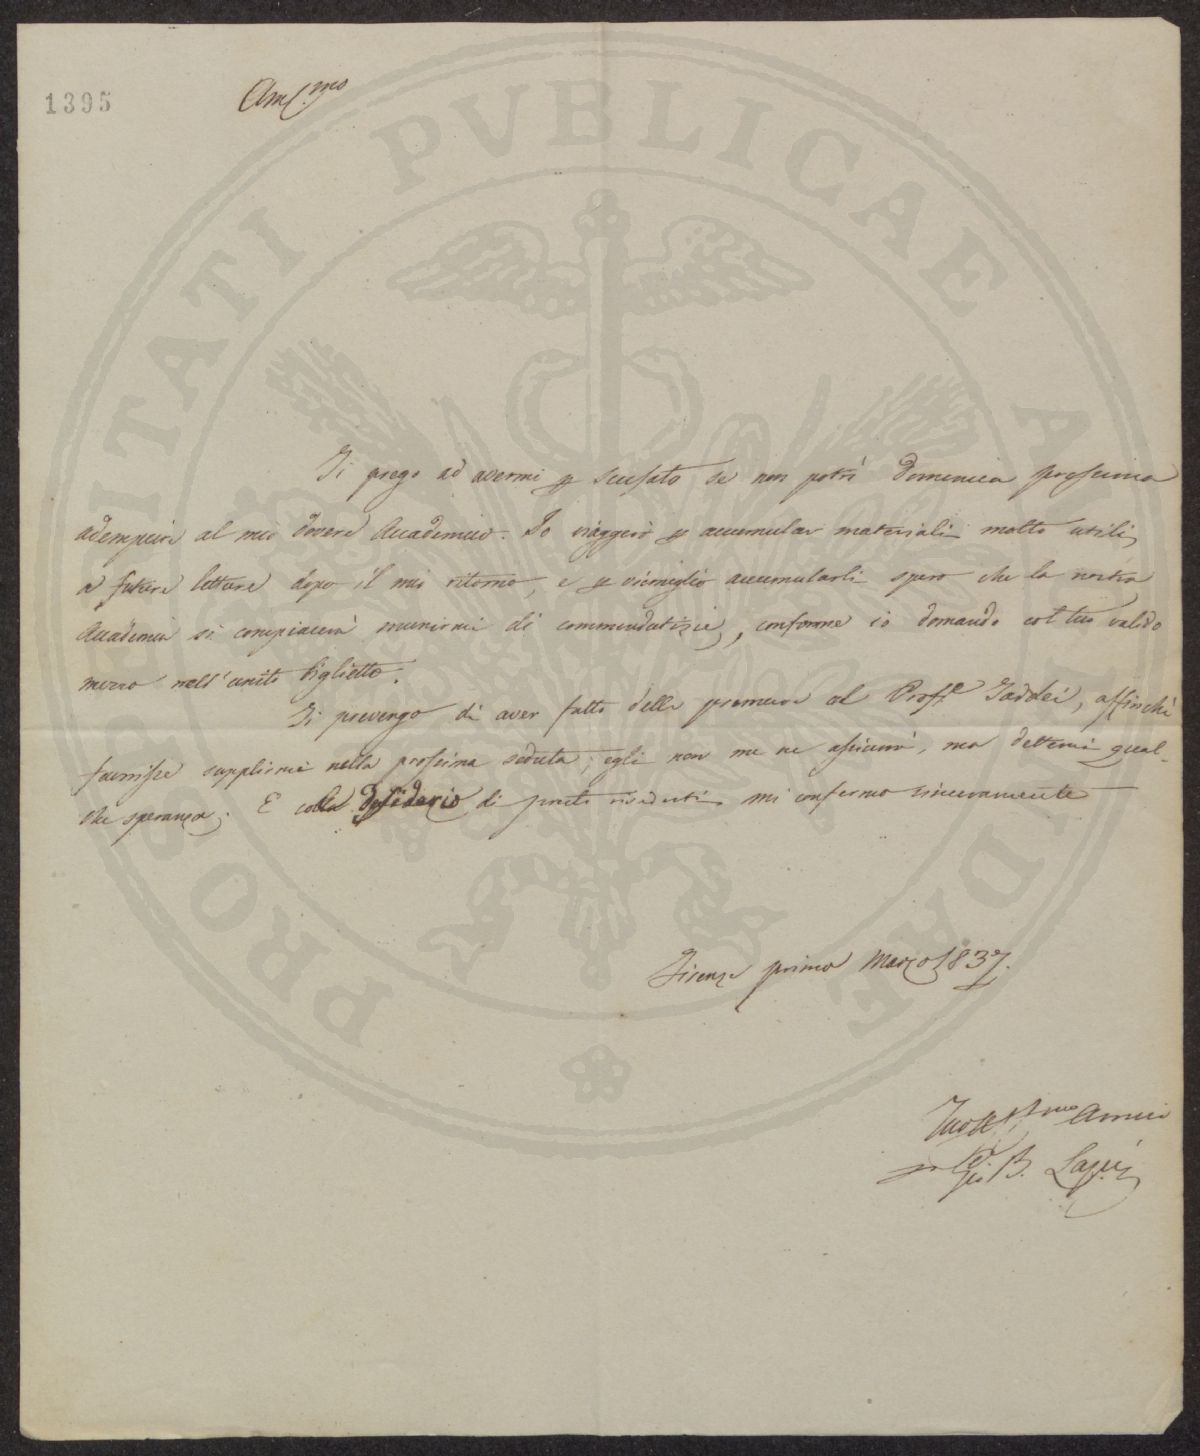 1395
Am.mo
Ti prego ad avermi p scusato se non potrò domenica prossima
adempiere al mio dovere Accademico. Io viaggerò p accumular materiali molto utili
a future letture dopo il mio ritorno, e p viemeglio accumularli spero che la nostra
Accademia si compiacerà munirmi di commendatizie, conforme io domando col tuo valido
mezzo nell'unito biglietto.
Ti prevengo di aver fatto delle premure al Profe. Taddei, affinchè
supplirmi nella prossima seduta; egli non me ne assicurò, ma dettemi qual-
che speranza. E colla desiderio di presto rivederti mi confermo sinceramente
Firenze primo Marzo 1837.
Tuo Amico
Gio B. Lapi
PROSPERITATI PVBLICAE AVGENDAE